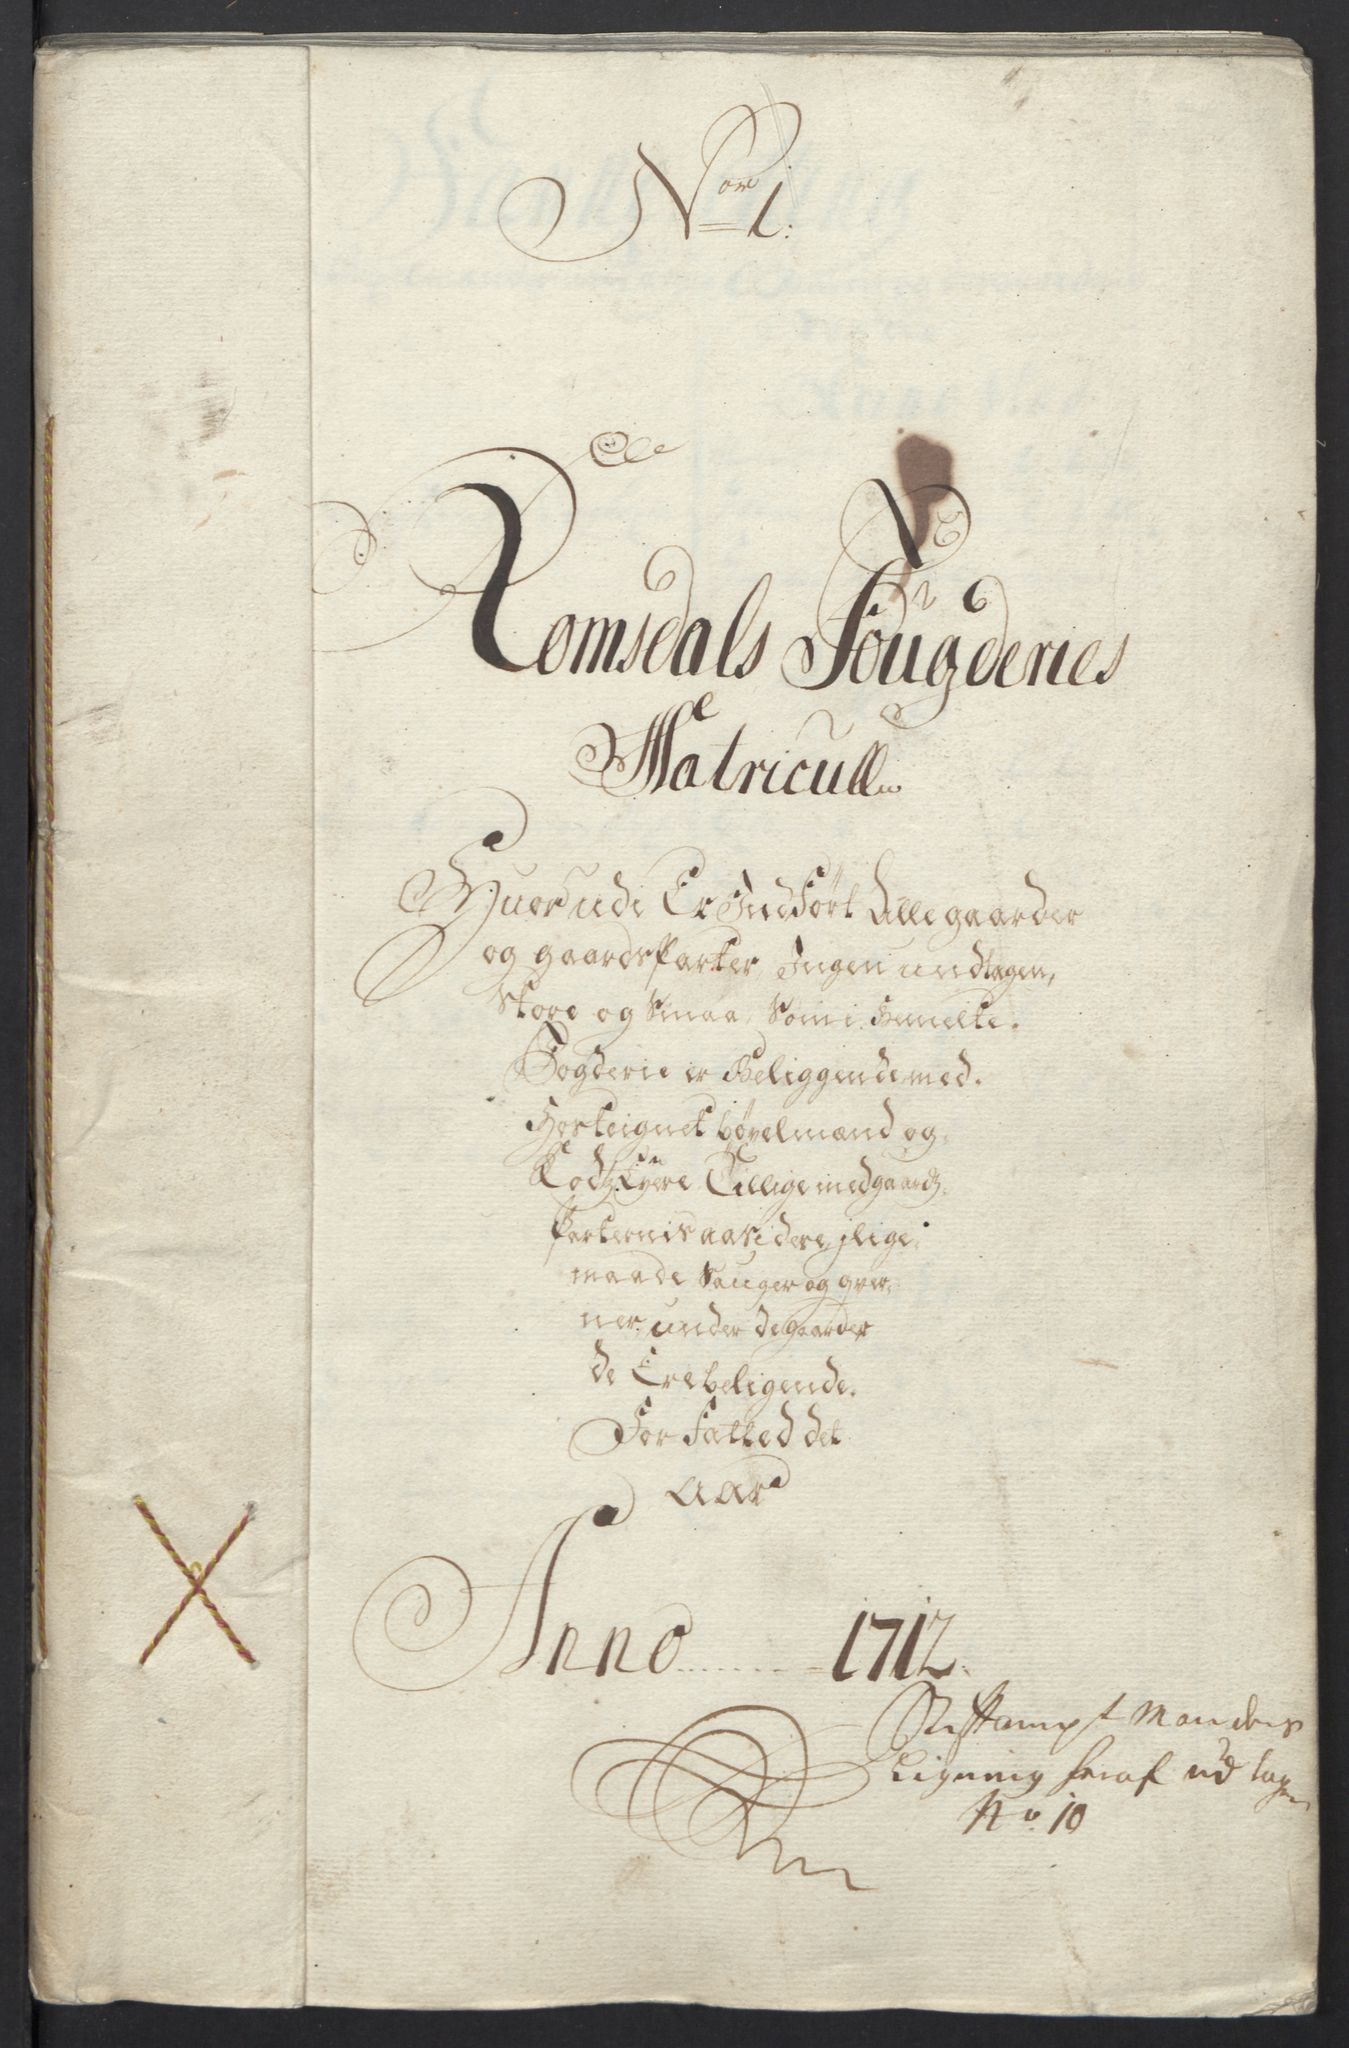 Nor 1.
Romsdals Fougderies
Matricull
Huor udi Er Indført Alle gaarder
og gaardsParter, Ingen undtagen,
store og Smaa, Som i Bemelte.
Fogderie er Beliggende med.
Hosteignet bøxelmand og
Godtz Eyere Tillige med gaardz
Parterni saa videre jlige
maade Sauger og qver,,
ner under de gaarder
de Ere beligende.
For Fatted det
Aar
Anno ....... 1712.
Mandens
Ligning heraf ud tagen
No. 10